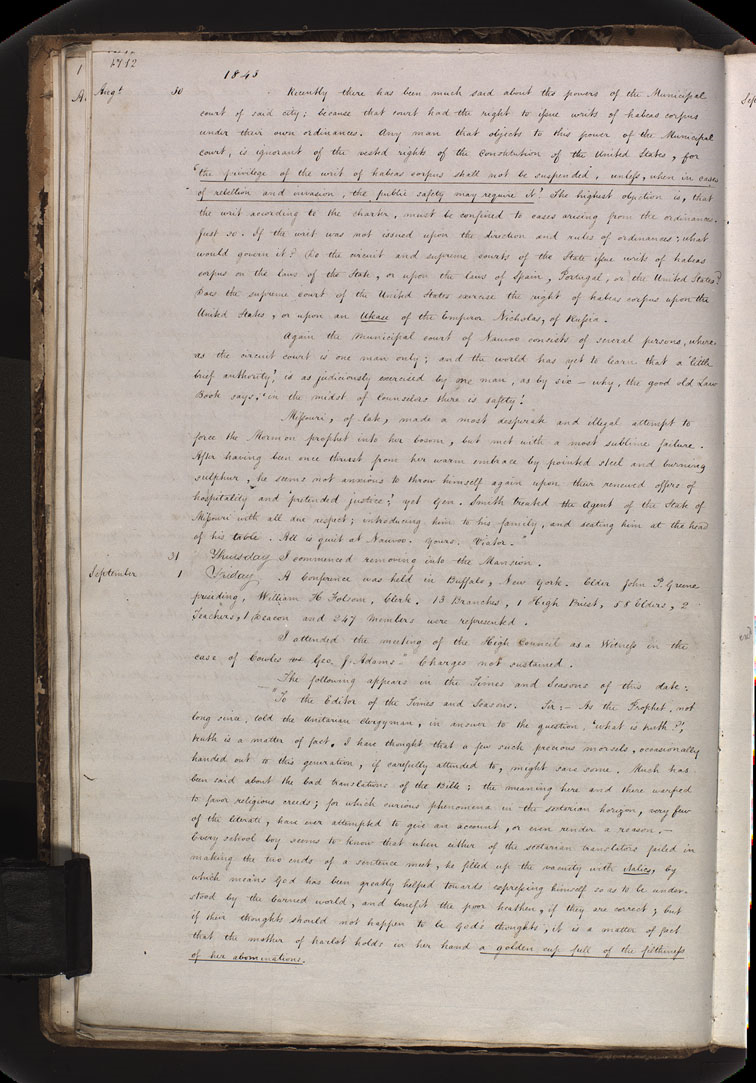 1712
1843
Augt 30 Recently there has been much said about the powers of the Municipal
court of said city; because that court had the right to issue writs of habeas corpus
under their own ordinances. Any man that objects to this power of the Municipal
court, is ignorant of the vested rights of the Constitution of the United States, for
"the privilege of the writ of habeas corpus shall not be suspended, unless, when in cases
of rebellion and invasion, the public safety may require it." The highest objection is, that
the writ according to the charter, must be confined to cases arising from the ordinances.
Just so. If the writ was not issued upon the direction and rules of ordinances; what
would govern it? Do the circuit and supreme courts of the State issue writs of habeas
corpus on the laws of the State, or upon the laws of Spain, Portugal, or the United States?
Does the supreme court of the United States exercise the right of habeas corpus upon the
United States, or upon an Ukase of the Emperor Nicholas, of Russia.
Again the Municipal court of Nauvoo consists of several persons, where
as the circuit court is one man only; and the world has yet to learn that a "little
brief authority," is as judiciously exercised by one man, as by six — why, the good old Law
Book says, "in the midst of Counselors there is safety."
Missouri, of late, made a most desperate and illegal attempt to
force the Mormon prophet into her bosom, but met with a most sublime failure.
After having been once thrust from her warm embrace by pointed steel and burning
sulphur, he seems not anxious to throw himself again upon their renewed offers of
hospitality and "pretended justice;" yet Gen. Smith treated the agent of the State of
Missouri with all due respect; introducing him to his family, and seating him at the head
of his table. All is quiet at Nauvoo. Yours, Viator."
31 Thursday I commenced removing into the Mansion.
September 1 Friday A Conference was held in Buffalo, New York. Elder John P. Greene
presiding, William H Folsom, Clerk. 13 Branches, 1 High Priest, 58 Elders, 2
Teachers, 1 Deacon and 247 members were represented.
I attended the meeting of the High Council as a Witness in the
case of Cowles vs Geo. J. Adams — Charges not sustained.
The following appears in the Times and Seasons of this date:
"To the Editor of the Times and Seasons. Sir:— As the Prophet, not
long since, told the Unitarian clergyman, in answer to the question, "what is truth?",
truth is a matter of fact, I have thought that a few such precious morsels, occasionally
handed out to this generation, if carefully attended to, might save some. Much has
been said about the bad translations of the Bible; the meaning here and there warped
to favor religious creeds; for which curious phenomena in the sectarian horizon, very few
of the literati, have ever attempted to give an account, or even render a reason.—
Every school boy seems to know that when either of the sectarian translators failed in
making the two ends of a sentence meet, he filled up the vacuity with italics, by
which means God has been greatly helped towards expressing himself so as to be under-
stood by the learned world, and benefit the poor heathen, if they are correct; but
if their thoughts should not happen to be God's thoughts, it is a matter of fact
that the mother of harlot holds in her hand a golden cup full of the filthiness
of her abominations.